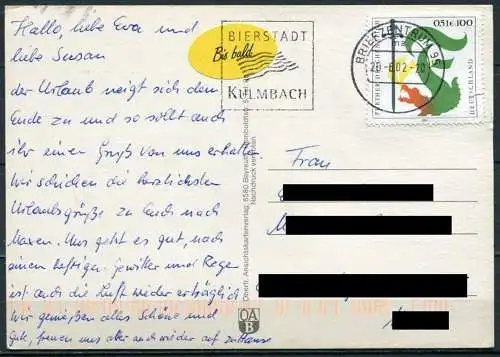 Hallo, liebe Eva und
liebe Susan
der Urlaub neigt sich dem
Ende zu und so sollt auch
ihr einen Gruß von uns erhalten
Wir schicken die herzlichsten
Urlaubsgrüße zu Euch nach
Maxen. Uns geht es gut, nach
einem heftigen Gewitter und Regen
ist auch die Luft wieder erträglich
Wir genießen alles Schöne und
Gute, freuen uns aber auch wieder auf zu Hause
Bis bald
BIERSTADT
KULMBACH
BRIEFZENTRUM 95
-20.-6.02-20
0,51€ 100
DEUTSCHLAND
Frau
M
Oberfr. Ansichtskartenverlag, 8580 Bayreuth
Nachdruck verboten
OAB